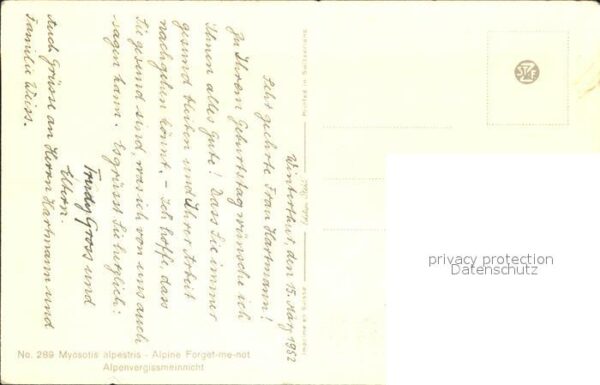 Winterthur, den 15. März 1982
Sehr geehrte Frau Hartmann!
Zu Ihrem Geburtstag wünsche ich
Ihnen alles Gute! Dass Sie immer
gesund bleiben und Ihrer Arbeit
nachgehen könnt. – Ich hoffe, dass
Sie gesund sind, was ich von uns auch
sagen kann. Es grüsst Sie herzlich:
Trudy Gross und
Eltern.
Auch Grüsse an Herrn Hartmann und
Familie Weiss.
No. 289 Myosotis alpestris - Alpine Forget-me-not
Alpenvergissmeinnicht
privacy protection
Datenschutz